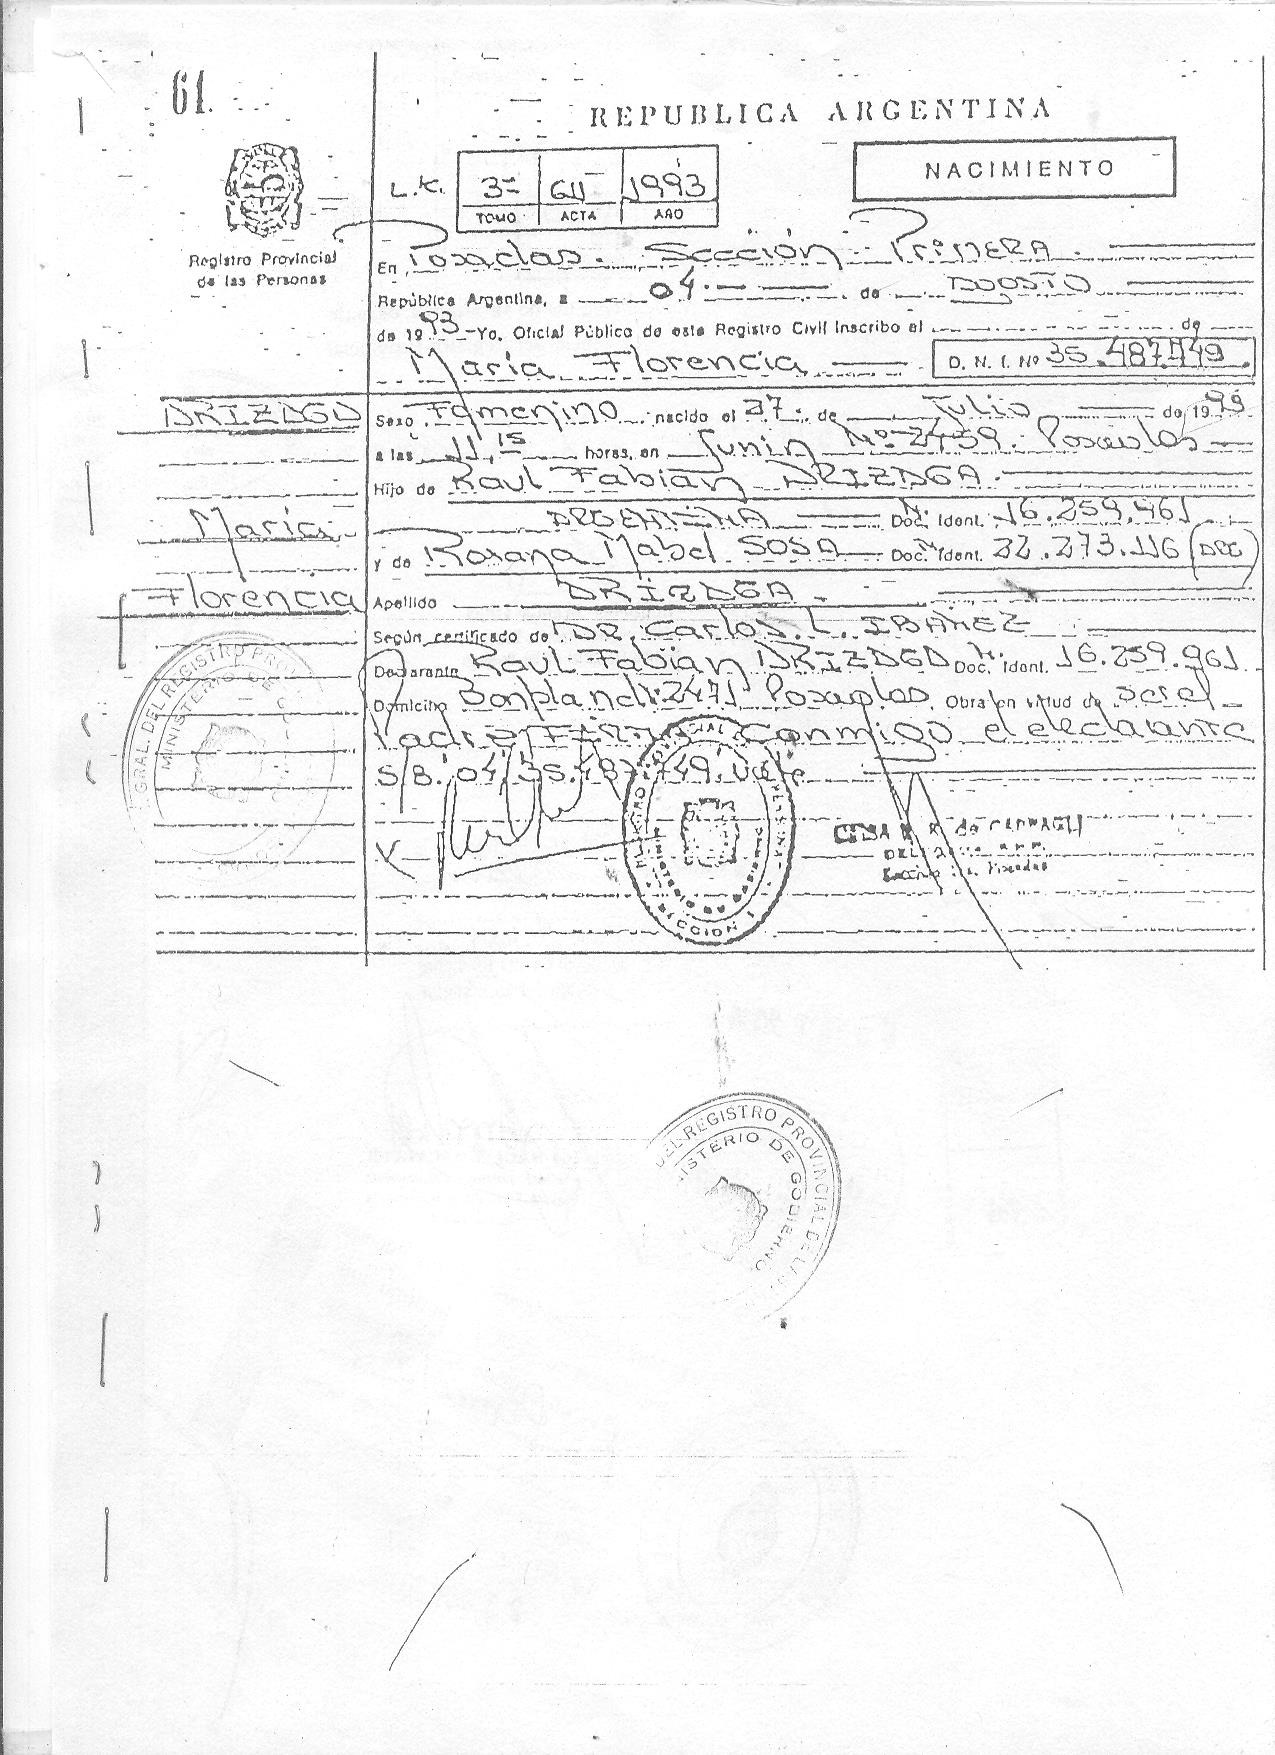 61.
REPUBLICA ARGENTINA
NACIMIENTO
L.K. 3ª 611 1993
TOMO ACTA AÑO
Registro Provincial
de las Personas
En Posadas. Sección Primera.
República Argentina, a 04 de Agosto
de 1993 Yo, Oficial Público de este Registro Civil Inscribo el de
María Florencia D. N. I. Nº 35.487.749.
DRIZDGA
Sexo Femenino nacido el 27 de Julio de 1993
a las 11,15 horas, en Junin Nº 2459. Posadas
Hijo de Raul Fabian DRIZDGA
María
ARGENTINA Doc. Ident. 16.259.961
y de Rosana Mabel SOSA Doc. Ident. 22.273.116 (ARG)
Florencia
Apellido DRIZDGA
Según certificado de DR. Carlos L. IBAÑEZ
Declarante Raul Fabian DRIZDGA Doc. Ident. 16.259.961
Domicilio Bonpland 2471 Posadas Obra en virtud de ser el
Padre Firma Conmigo el declarante
S/B. 04, 35.487.749. Vale
GRAL. DEL REGISTRO PROV
MINISTERIO DE
SECCION 1
DEL REGISTRO PROVINCIAL DE LAS
MINISTERIO DE GOBIERNO